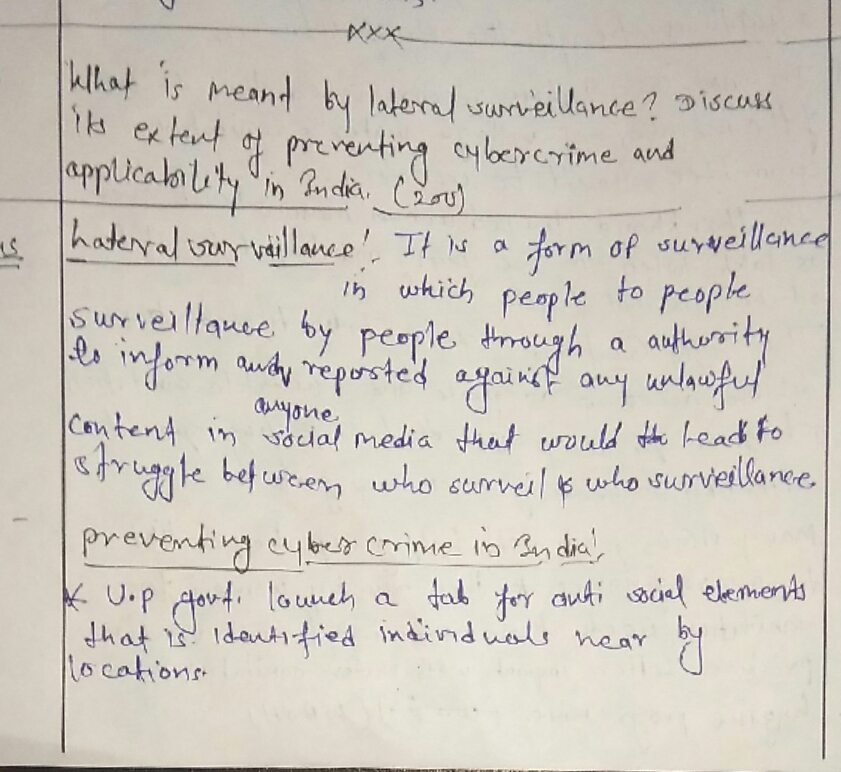 xxx
What is meant by lateral surveillance? Discuss
its extent of preventing cybercrime and
applicability in India. (200)
Lateral survaillance:- It is a form of surveillance
in which people to people
surveillance by people through a authority
to inform and reported against any unlawful
content in anyone social media that would lead to
struggle between who surveil & who surviellance.
preventing cyber crime in India:
* U.P govt. launch a tab for anti social elements
that is identified individuals near by
locations.